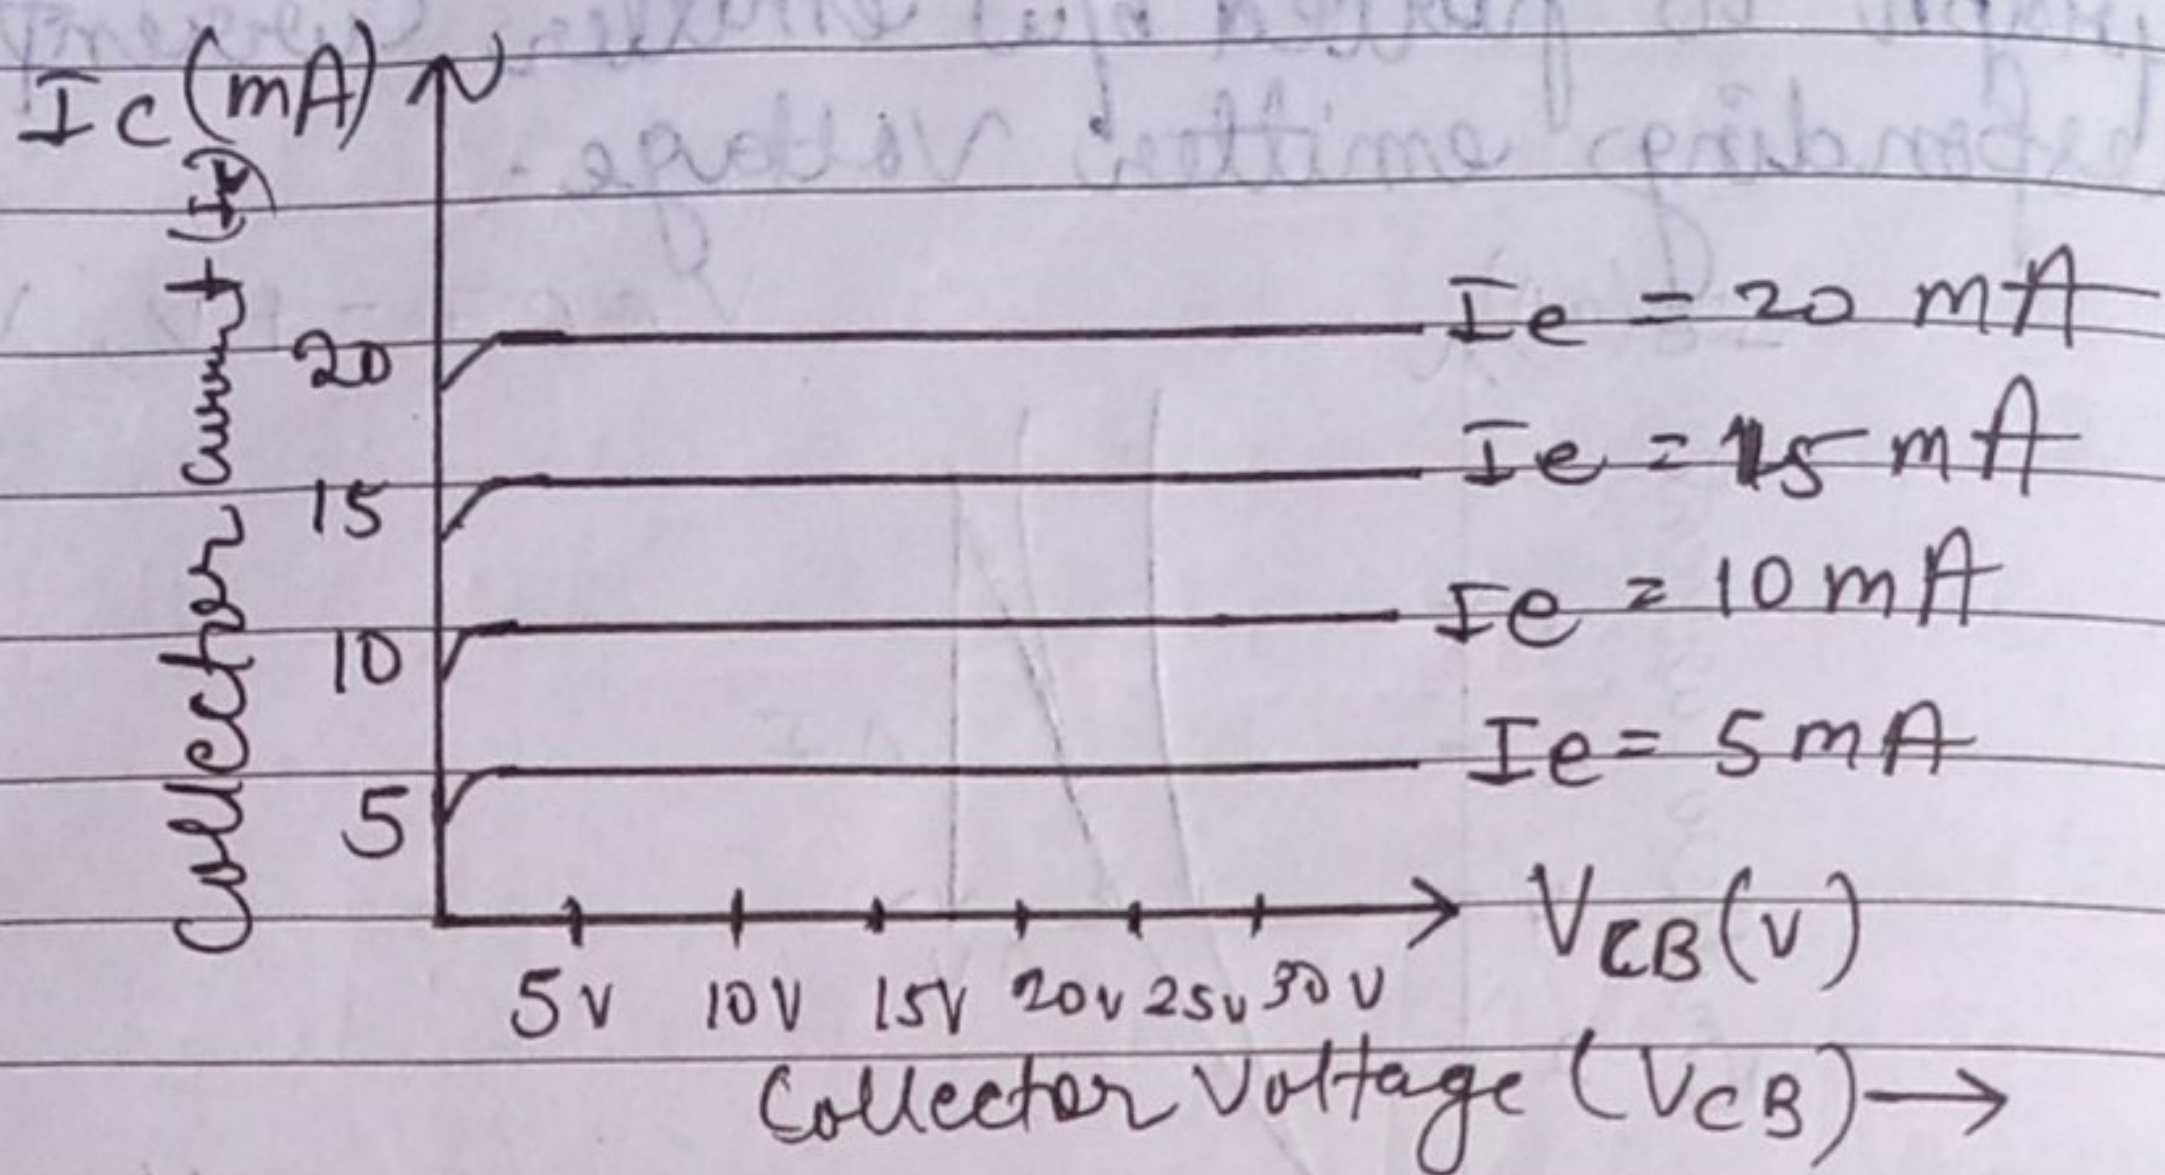 Ic (mA)
Collector current (Ic)
20
15
10
5
Ie = 20 mA
Ie = 15 mA
Ie = 10 mA
Ie = 5 mA
VCB (v)
5v 10V 15V 20v 25v 30V
Collector Voltage (VCB) →